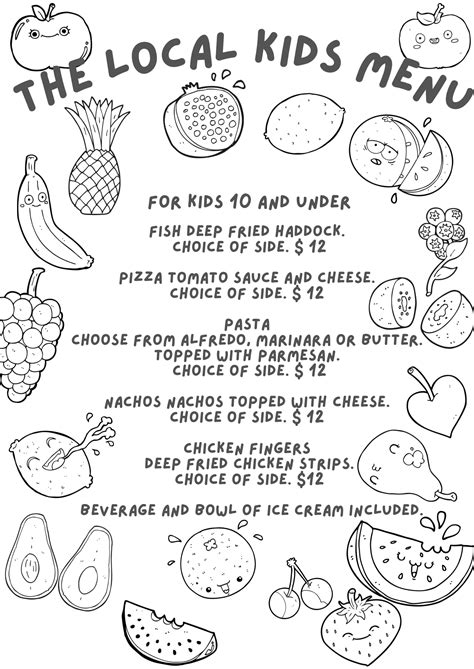 THE LOCAL KIDS MENU
FOR KIDS 10 AND UNDER
FISH DEEP FRIED HADDOCK.
CHOICE OF SIDE. $ 12
PIZZA TOMATO SAUCE AND CHEESE.
CHOICE OF SIDE. $ 12
PASTA
CHOOSE FROM ALFREDO, MARINARA OR BUTTER.
TOPPED WITH PARMESAN.
CHOICE OF SIDE. $ 12
NACHOS NACHOS TOPPED WITH CHEESE.
CHOICE OF SIDE. $ 12
CHICKEN FINGERS
DEEP FRIED CHICKEN STRIPS.
CHOICE OF SIDE. $12
BEVERAGE AND BOWL OF ICE CREAM INCLUDED.